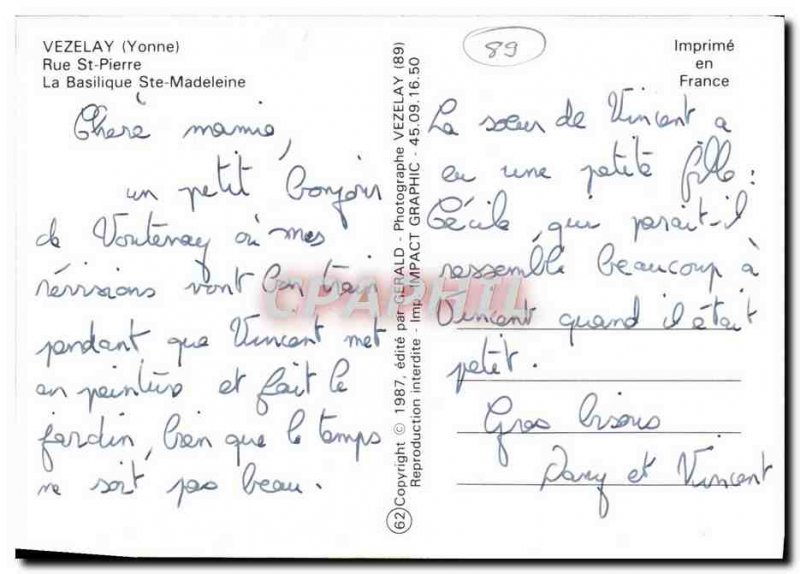 VEZELAY (Yonne)
Rue St-Pierre
La Basilique Ste-Madeleine
89
Imprimé
en
France
Chère mamie,
un petit bonjour
de Voutenay où mes
révisions vont bon train
pendant que Vincent met
en peinture et fait le
jardin, bien que le temps
ne soit pas beau.
62 Copyright © 1987, édité par GERALD - Photographe VEZELAY (89)
Reproduction interdite - Imp. IMPACT GRAPHIC - 45.09.16.50
La sœur de Vincent a
eu une petite fille :
Cécile, qui parait-il
ressemble beaucoup à
Vincent quand il était
petit.
Gros bisous
Dany et Vincent
CPAPHIL